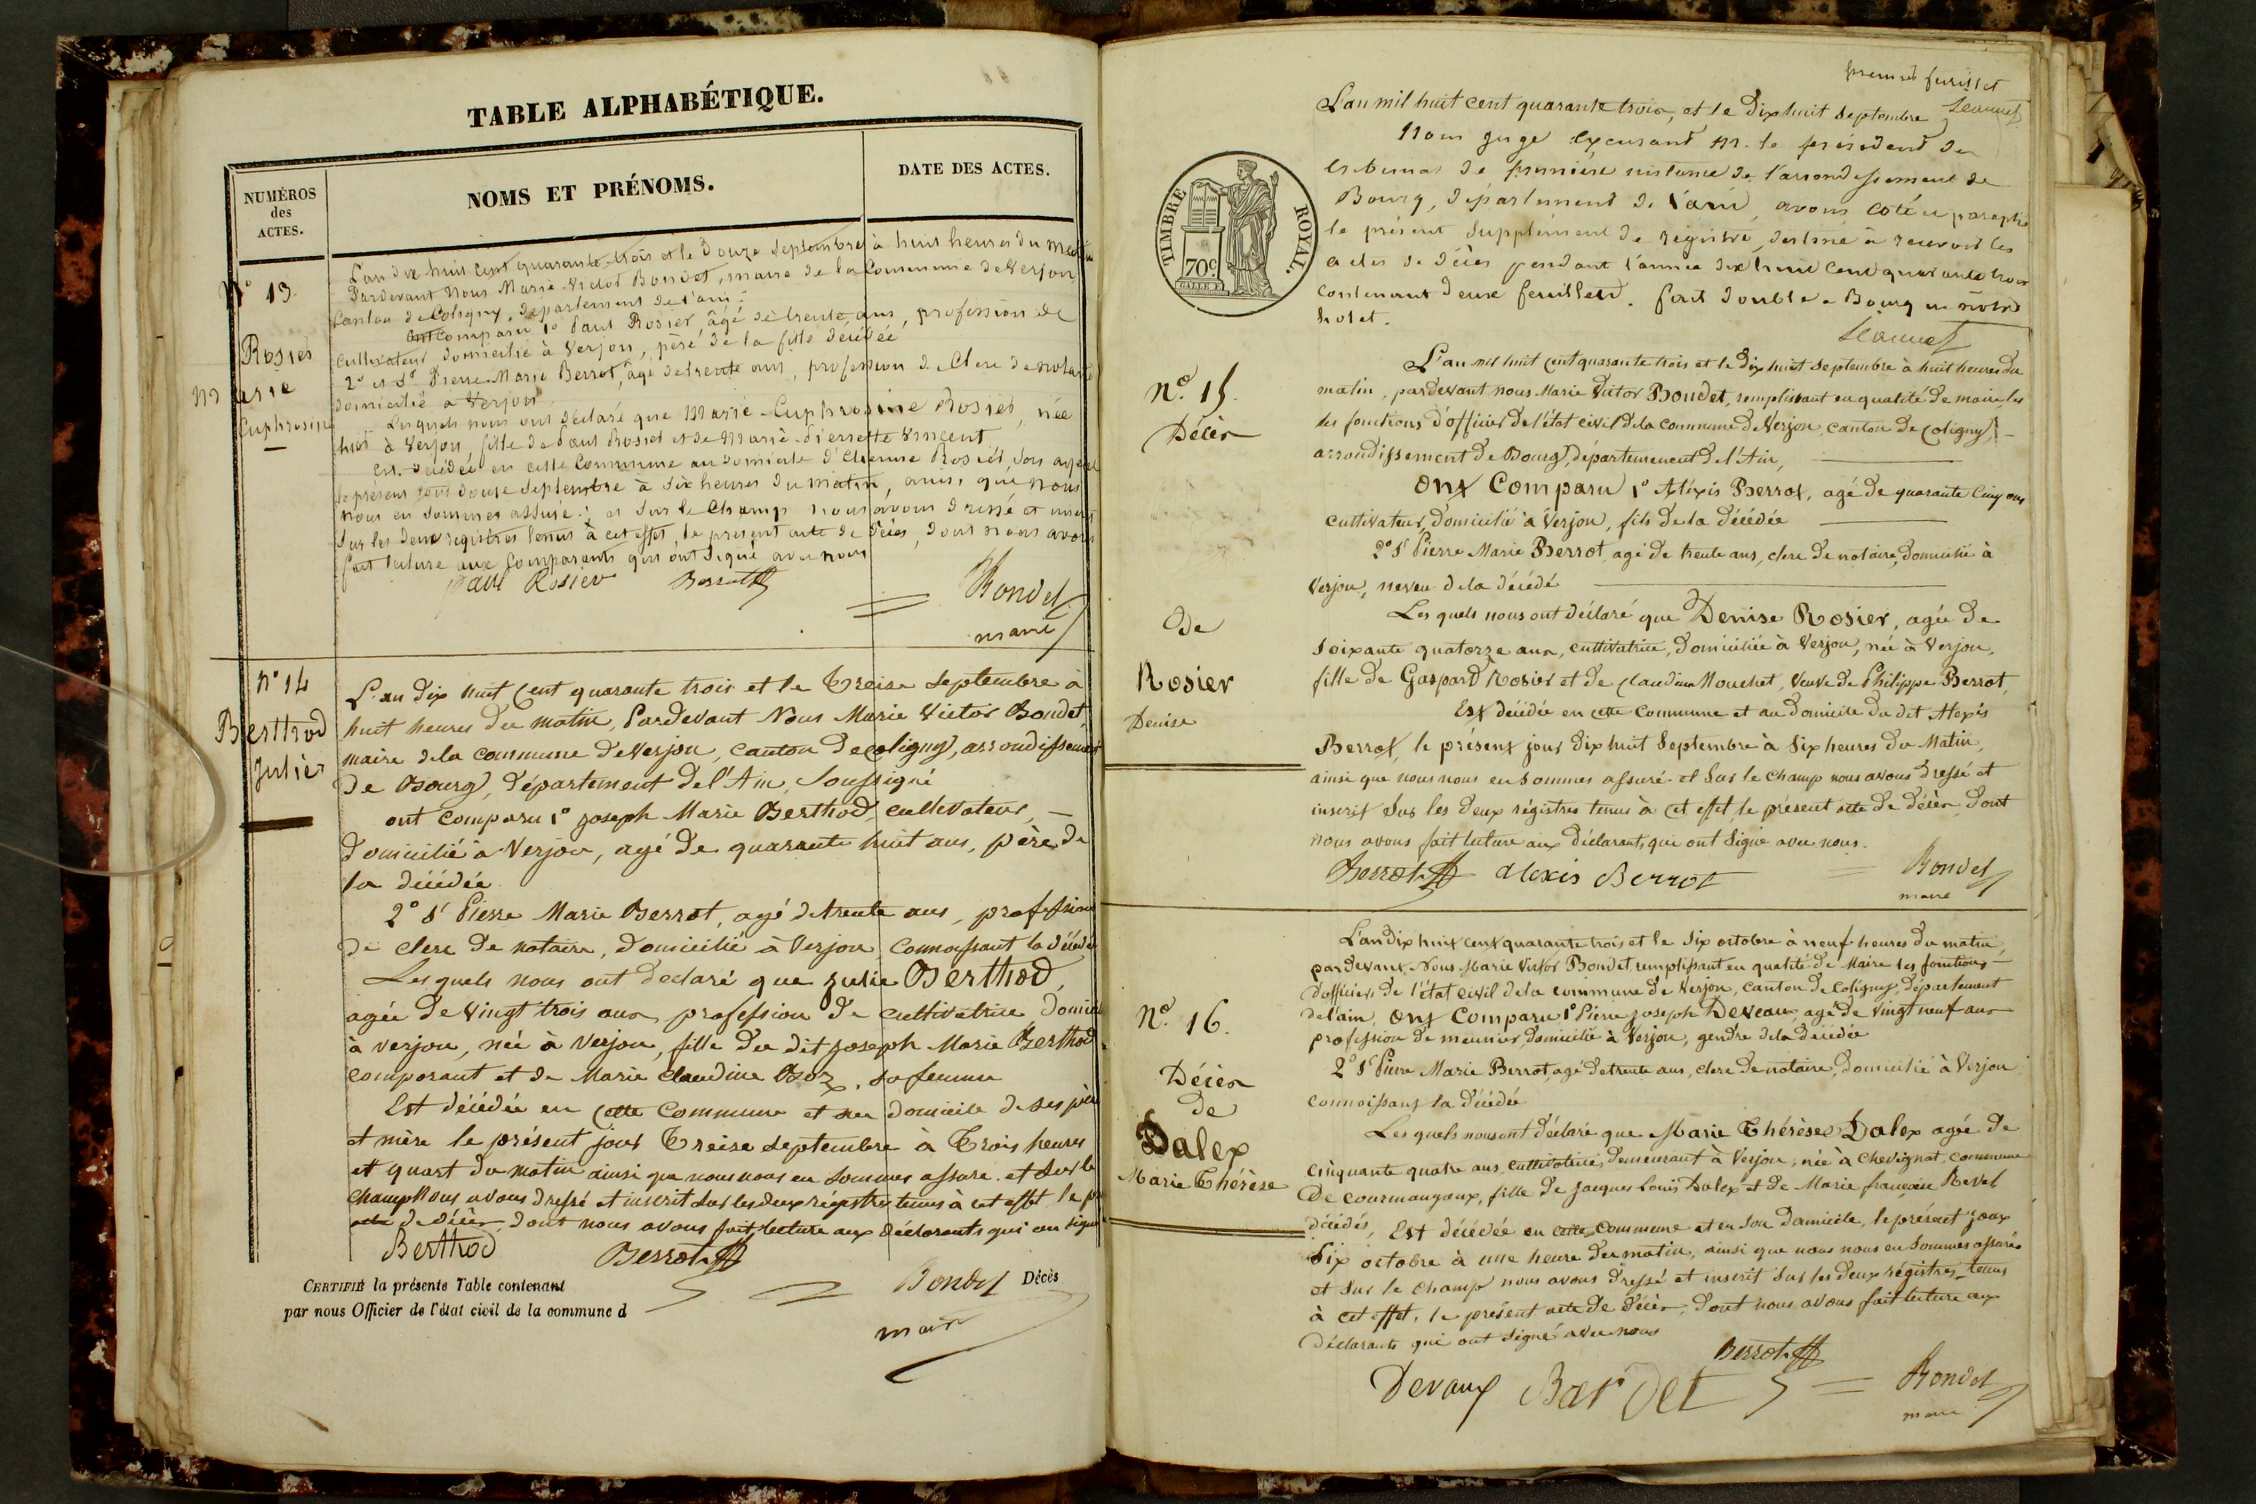 TABLE ALPHABÉTIQUE.
NUMÉROS
des
ACTES.
NOMS ET PRÉNOMS.
DATE DES ACTES.
N° 13
Rosier
Marie
Euphrosine
L'an dix huit cent quarante trois et le douze septembre à huit heures du matin
Pardevant Nous Marie Victor Bondet, maire de la Commune de Verjon
Canton de Coligny, département de l'ain;
Ont comparu 1° Paul Rosier, âgé de trente ans, profession de
cultivateur domicilié à Verjon, père de la fille décédée
2° et Sr Pierre Marie Berrot, âgé de trente ans, profession de Clerc de notaire
domicilié à Verjon
Lesquels nous ont déclaré que Marie Euphrosine Rosier, née
hier à Verjon, fille de Paul Rosier et de Marie Pierrette Vincent,
est décédée en cette Commune au domicile d'Etienne Rosier, son ayeul
le présent jour douze septembre à six heures du matin, ainsi que nous
nous en sommes assuré; et sur le Champ nous avons dressé et inscrit
sur les deux registres tenus à cet effet, le present acte de décès, dont nous avons
fait lecture aux Comparents qui ont signé avec nous
Paul Rosier Berrot Bondet
maire
N° 14
Berthod
Julie
L'an dix huit Cent quarante trois et le Treise septembre à
huit heures du matin, Pardevant Nous Marie Victor Bondet
maire de la commune de Verjon, canton de Coligny, arrondissement
de Bourg, département de l'Ain, Soussigné
ont comparu 1° joseph Marie Berthod, cultivateur,
domicilié à Verjon, agé de quarante huit ans, père de
la décédée
2° Sr Pierre Marie Berrot, agé de trente ans, profession
de clerc de notaire, domicilié à Verjon connoissant la décédée
Lesquels nous ont declaré que julie Berthod,
agée de Vingt trois ans, profession de cultivatrice, domici
à verjon, née à Verjon, fille du dit joseph Marie Berthod
comparant et de Marie Claudine Boz, sa femme
Est décédée en Cette Commune et au domicile de ses père
et mère le présent jour Treise septembre à Trois heures
et quart du matin ainsi que nous nous en sommes assuré. et sur le
champ Nous avons dressé et inscrit sur les deux régistres tenus à cet effet le p
acte de décès, dont nous avons fait lecture aux déclarants qui ont signé
Berthod Berrot Bondet
maire
CERTIFIÉ la présente Table contenant
Décès
par nous Officier de l'état civil de la commune d
premier feuillet
Jeannet
L'an mil huit cent quarante trois, et le Dix huit Septembre
Nous juge excusant Mr. le président du
tribunal de première instance de l'arrondissement de
Bourg, département de l'ain, avons coté et paraphé
le présent Supplément de régistre, destiné à recevoir les
actes de décès pendant l'année dix huit cent quarante trois
contenant deux feuillets. fait double à Bourg en notre
hotel.
Jeannet
TIMBRE ROYAL.
70c
N° 15.
Décès
De
Rosier
Denise
L'an mil huit cent quarante trois et le dix huit septembre à huit heures du
matin, pardevant nous Marie Victor Bondet, remplissant en qualité de maire, les
les fonctions d'officier de l'état civil de la commune de Verjon, canton de Coligny,
arrondissement de Bourg, département de l'Ain,
Ont Comparu 1° Aléxis Berrot, agé de quarante Cinq ans
cultivateur, domicilié à Verjon, fils de la décédée
2° Sr Pierre Marie Berrot, agé de trente ans, clerc de notaire, domicilié à
Verjon, neveu de la décédé
Les quels nous ont déclaré que Denise Rosier, agée de
soixante quatorze ans, cultivatrice, domiciliée à Verjon, née à Verjon,
fille de Gaspard Rosier et de Claudine Mouchet, veuve de Philippe Berrot,
Est décédée en cette commune et au domicile du dit Alexis
Berrot, le présent jour dix huit Septembre à Six heures du Matin,
ainsi que nous nous en sommes assuré. et sur le champ nous avons dressé et
inscrit sur les deux régistres tenus à cet effet, le présent acte de décès, dont
nous avons fait lecture aux déclarants qui ont signé avec nous.
Berrot alexis Berrot Bondet
maire
N° 16.
Décès
de
Dalex
Marie Thérèse
L'an dix huit cent quarante trois et le six octobre à neuf heures du matin,
pardevant, Nous Marie Victor Bondet remplissant en qualité de Maire les fonctions
d'officier de l'état civil de la commune de Verjon, canton de Coligny, département
de l'ain, Ont Comparu 1° Pierre joseph Deveaux, agé de Vingt neuf ans
profession de meunier, domicilié à Verjon, gendre de la décédée
2° Sr Pierre Marie Berrot, agé de trente ans, clerc de notaire, domicilié à Verjon
connoissant la décédée
Les quels nous ont déclaré que Marie Thérèse Dalex agée de
cinquante quatre ans, cultivatrice, demeurant à Verjon, née à Chevignat, commune
De courmangoux, fille de jacques Louis Dalex et de Marie françoise Revel
décédés, Est décédée en cette commune et en son domicile, le présent jour
Six octobre à une heure du matin, ainsi que nous nous en sommes assurés
et sur le champ nous avons dressé et inscrit sur les deux régistres tenus
à cet effet, le présent acte de décès, dont nous avons fait lecture aux
déclarants qui ont signé avec nous
Berrot
Devaux Bardet Bondet
maire